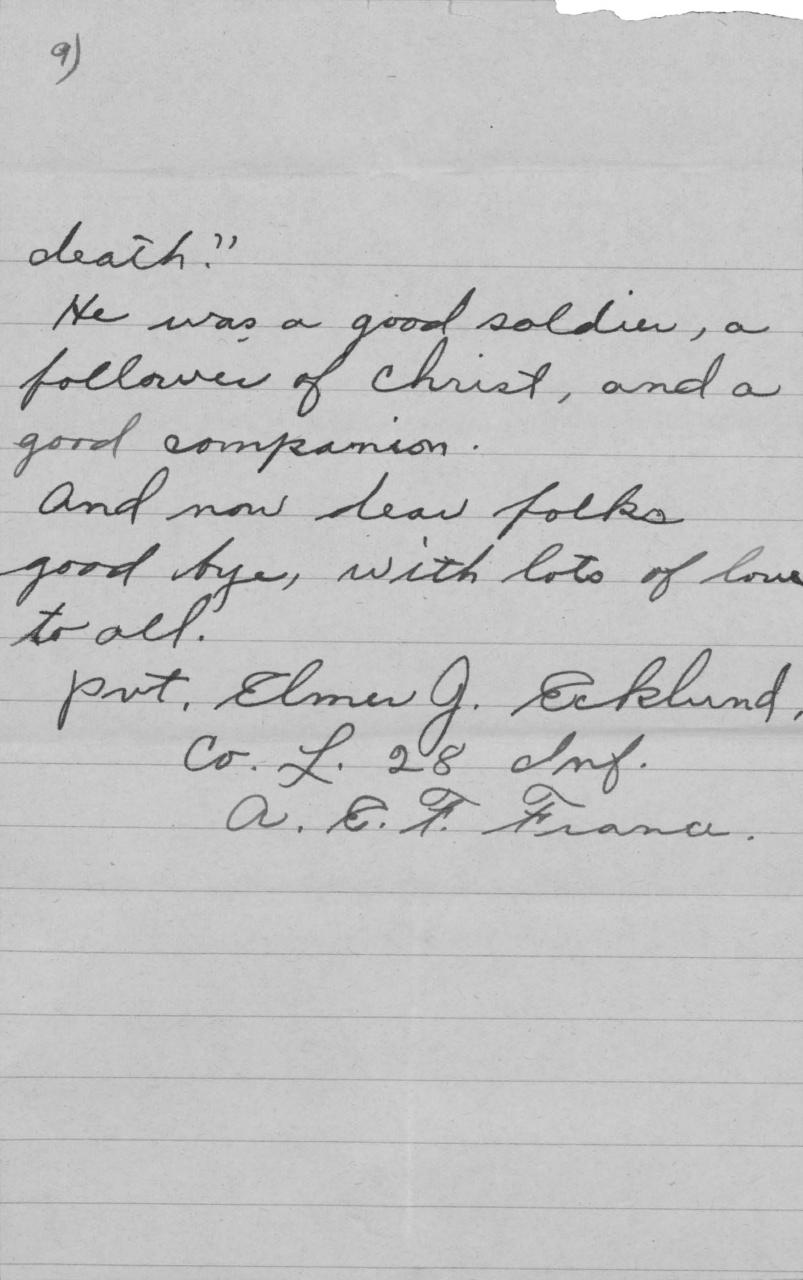 9)
death."
He was a good soldier, a
follower of Christ, and a
good companion.
And now dear folks
good bye, with lots of love
to all.
Pvt. Elmer J. Ecklund,
Co. L. 28 Inf.
A. E. F. France.